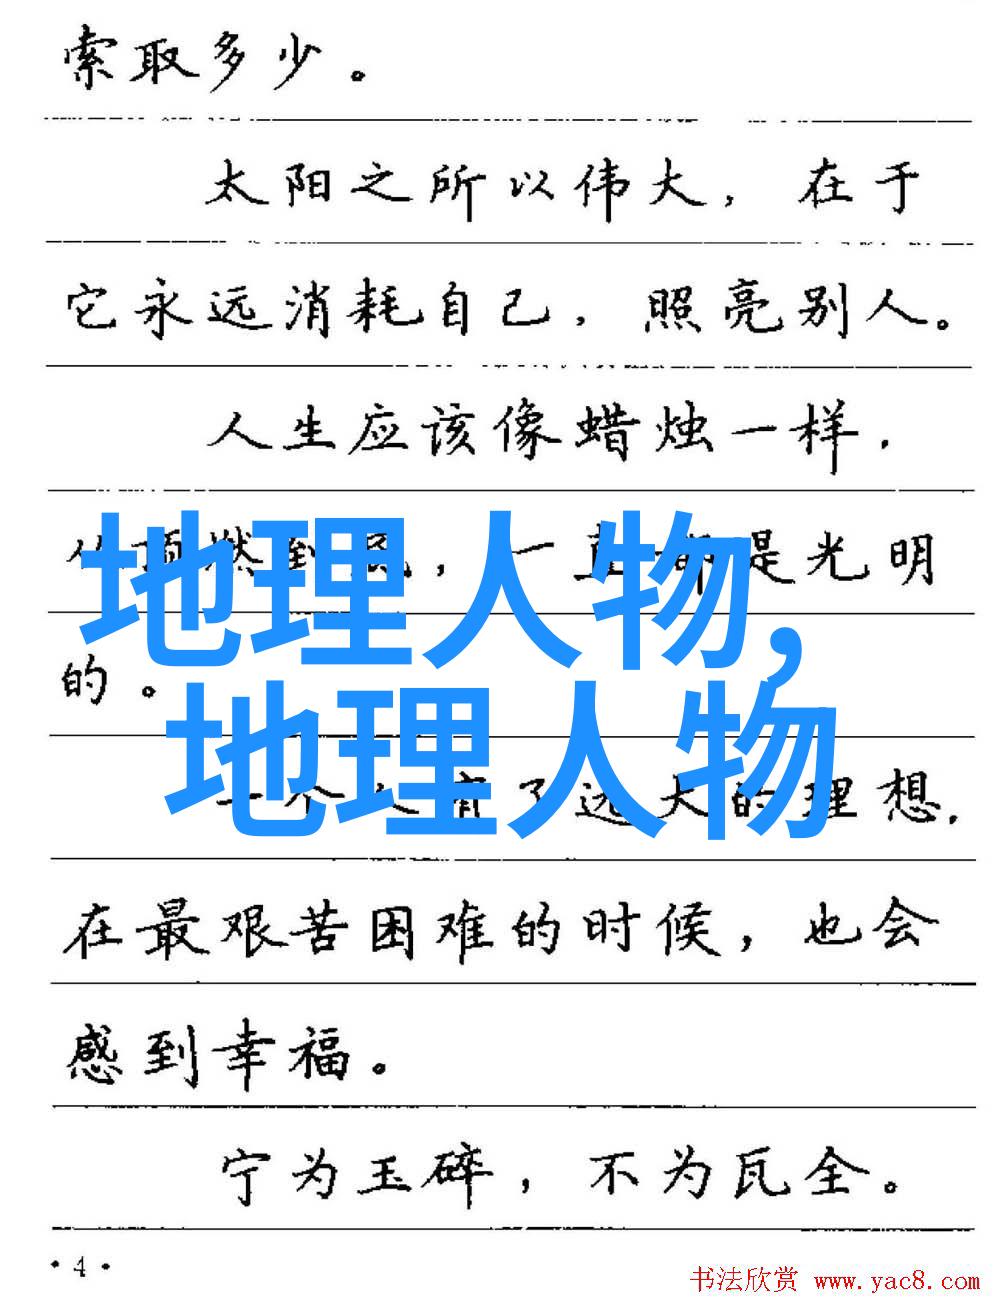 索取多少。
太阳之所以伟大，在于
它永远消耗自己，照亮别人。
人生应该像蜡烛一样.
从顶燃到底，一直都是光明
的。
地理人物,
地理人物
一个人有了远大的理想.
在最艰苦困难的时候，也会
感到幸福。
宁为玉碎，不为瓦全。
·4·
书法欣赏 www.yac8.com